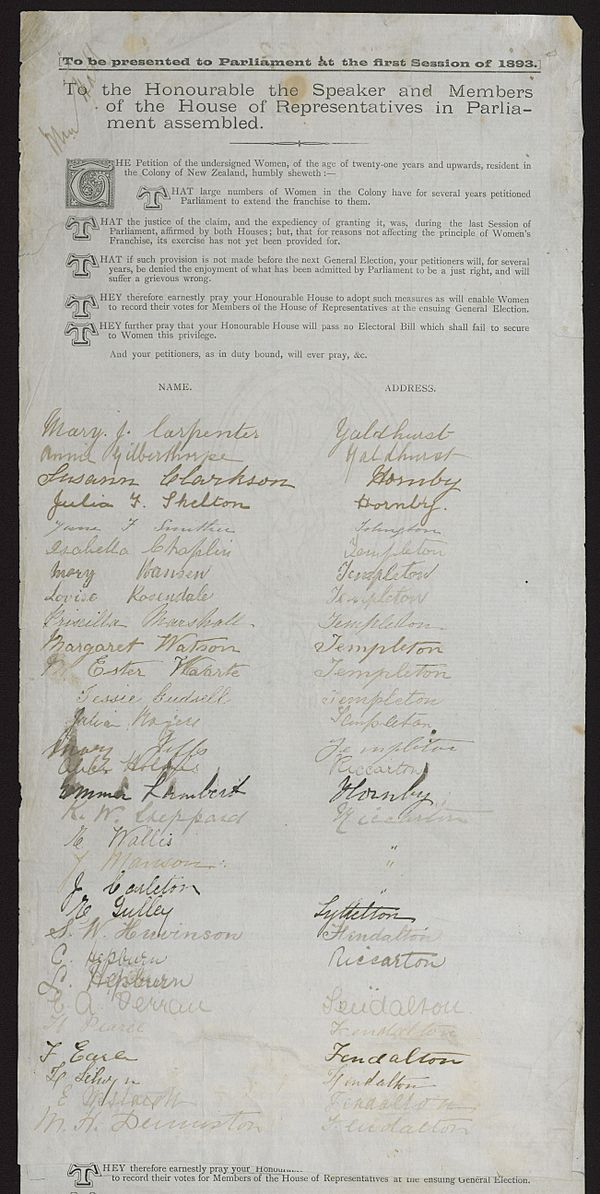 [To be presented to Parliament at the first Session of 1893.]
To the Honourable the Speaker and Members
of the House of Representatives in Parlia-
ment assembled.
THE Petition of the undersigned Women, of the age of twenty-one years and upwards, resident in
the Colony of New Zealand, humbly sheweth :—
THAT large numbers of Women in the Colony have for several years petitioned
Parliament to extend the franchise to them.
THAT the justice of the claim, and the expediency of granting it, was, during the last Session of
Parliament, affirmed by both Houses; but, that for reasons not affecting the principle of Women's
Franchise, its exercise has not yet been provided for.
THAT if such provision is not made before the next General Election, your petitioners will, for several
years, be denied the enjoyment of what has been admitted by Parliament to be a just right, and will
suffer a grievous wrong.
THEY therefore earnestly pray your Honourable House to adopt such measures as will enable Women
to record their votes for Members of the House of Representatives at the ensuing General Election.
THEY further pray that your Honourable House will pass no Electoral Bill which shall fail to secure
to Women this privilege.
And your petitioners, as in duty bound, will ever pray, &c.
NAME. ADDRESS.
Mary. J. Carpenter Yaldhurst
Annie Gilberthorpe Yaldhurst
Susann Clarkson Hornby
Julia F. Shelton Hornby.
Isabella Chaplin Templeton
Mary Hansen Templeton
Louisa Rosendale Templeton
Priscilla Marshall. Templeton
Margaret Watson Templeton
M Ester Templeton
Templeton
Julia Rogers Templeton
Mary Templeton
Riccarton
Emma Lambert Hornby
K. W. Sheppard Riccarton
Wallis "
Manson "
J. Carleton "
Gulley Lyttelton
S. W. Fendalton
C. Hepburn Riccarton
C. Hepburn
C. A. Fendalton
Pearce Fendalton
F Earle Fendalton
Fendalton
E Fendalton
M. A. Fendalton
THEY therefore earnestly pray your
to record their votes for Members of the House of Representatives at the ensuing General Election.